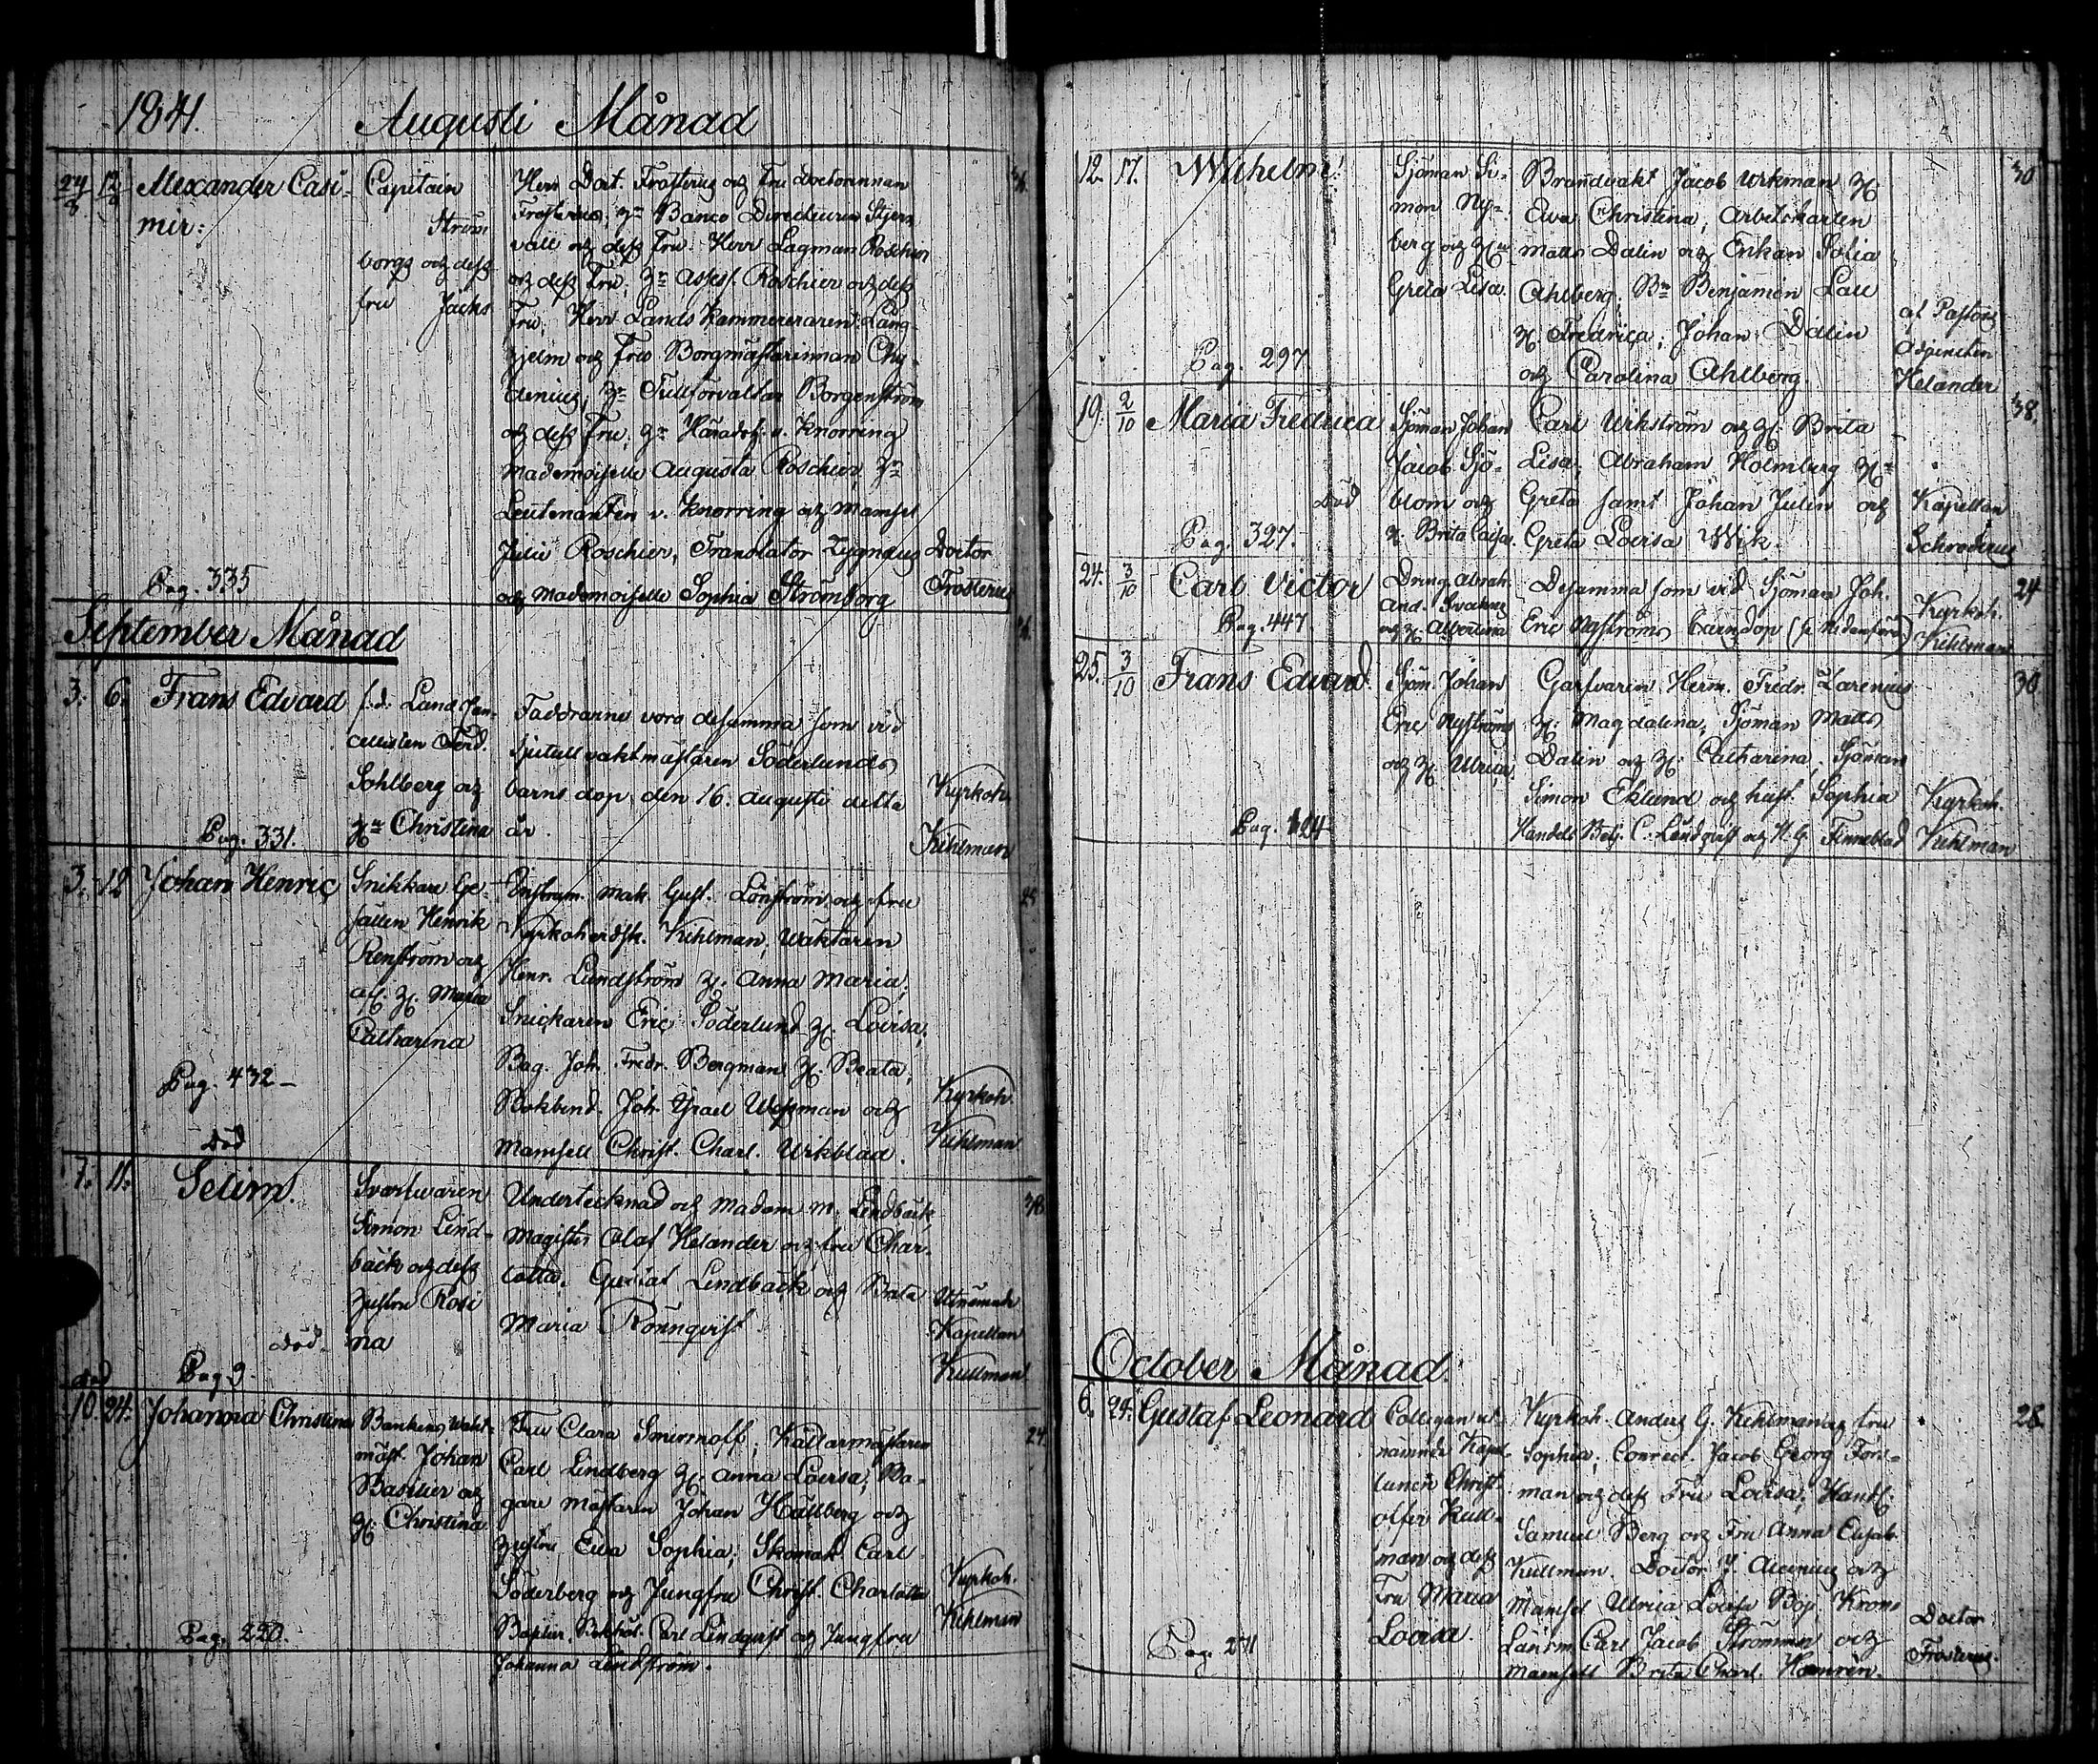 1841. Augusti Månad
24/8 12/9 Alexander Casi-
mir:
Pag. 335
Capitain
Ström
borgs och dess
fru Jacks
Herr Doct. Frosterus och Fru Doctorinnan
Frosterus; Hr Banco Directeuren Stjern
vall och dess Fru; Herr Lagman Roschier
och dess Fru; Hr Assess. Roschier och dess
Fru; Herr Lands Kammereraren Lang-
hjelm och Fru Borgmästarinnan Chy-
denius, Hr Tullförvaltar Borgenström
och dess Fru; Hr Häradsh. v. Knorring
Mademoiselle Augusta Roschier, Hr
Leutenanten v. Knorring och Mamsel
Julie Roschier, Translator Zygnæus
och Mademoiselle Sophia Strömborg
Doctor
Frosterus
September Månad
3. 6. Frans Edvard
Pag. 331.
f.d. Land Can-
cellisten Ferd.
Sohlberg och
Hu Christina
Faddrarne voro desamma som vid
barns dop, den 16. Augusti detta
år.
Kyrkoh.
Kihlman
3. 12 Johan Henric
Pag. 432-
Död
Snikkare Ge-
sällen Henrik
Renström och
H. Maria
Catharina
Instrum. mak. Gust. Lönström och fru
Kyrkoherdsk. Kihlman, Waktaren
Henr. Lundström H. Anna Maria;
Snickaren Eric Söderlund H. Lovisa;
Bag. Joh. Fredr. Bergman H. Beata;
Bokbind. Joh. Israel Wessman och
Mamsell Christ. Charl. Wikblad.
Kyrkoh.
Kihlman
7. 11. Selim.
Död.
Pag 9.
Svarfvaren
Simon Lind-
bäck och dess
hustru Rosi
na
Undertecknad och Madam M. Lindbäck,
Magister Olaf Helander och fru Char-
lotta; Gustaf Lindbäck och Brita
Maria Rönnqvist
Utnämnde
Kapellan
Kullman
död
10. 24. Johanna Christina
Pag. 220.
Bankens Wakt-
mäst. Johan
Basilier och
H. Christina
Fru Clara Smirnoff; Källarmästaren
Carl Lindberg H. Anna Lovisa; Ba-
gare mästaren Johan Hällberg och
hustru Ewa Sophia; Skomak. Carl
Söderberg och Jungfru Christ. Charlotta
Basilier, Bokhål. Carl Lindqvist och Jungfru
Johanna Lindström.
Kyrkoh.
Kihlman
24.
12. 17. Wilhelm!
Pag. 297
Sjöman Si-
mon Ny-
berg och Hu
Greta Lisa.
Brandvakt Jacob Wikman H.
Ewa Christina; Arbetskarlen
Matts Dalin och Enkan Sofia
Ahlberg; Bn Benjamin Lau
H. Fredrica; Johan Dalin
och Carolina Ahlberg.
af Pastors
Adjuncten
Helander
30
19. 2/10 Maria Fredrica
Död
Pag. 327.
Sjöman Johan
Jacob Sjö-
blom och
H. Brita Caisa.
Carl Wikström och H. Brita
Lisa; Abraham Holmberg H.
Greta samt Johan Julin och
Greta Lovisa Wik.
Kapellan
Schroderus
38.
24. 3/10 Carl Victor
Pag. 447.
Dreng Abrah.
And.
och H. Albertina
Desamma som vid Sjöman Joh.
Eric Nyströms barndop (se nedanföre)
Kyrkoh.
Kihlman
24
25. 3/10 Frans Edvard.
Pag. 124
Sjöm. Johan
Eric Nyströms
och H. Ulrica
Garfvaren Herm. Fredr. Zarenius
H. Magdalena; Sjöman Matts
Dalin och H. Catharina; Sjöman
Simon Eklund och hust. Sophia
Handels Betj. C. Lindqvist och H. G. Finneblad
Kyrkoh.
Kihlman
30.
October Månad.
6. 24. Gustaf Leonard
Pag. 271
Collegan ut-
nämnde Kapel-
lanen Christ-
offer Kull-
man och dess
Fru Maria
Lovisa.
Kyrkoh. Anders G. Kihlman och fru
Sophia; Conrect. Jacob Georg Fors-
man och dess Fru Lovisa; Handl:
Samuel Berg och Fru Anna Elisab.
Kullman. Doctor J. och
Mamsel Ulrica Lovisa Boj; Krono
Länsm. Carl Jacob Strömmer och
Mamsell Brita Charl. Hamrén.
Doctor
Frosterus.
28.